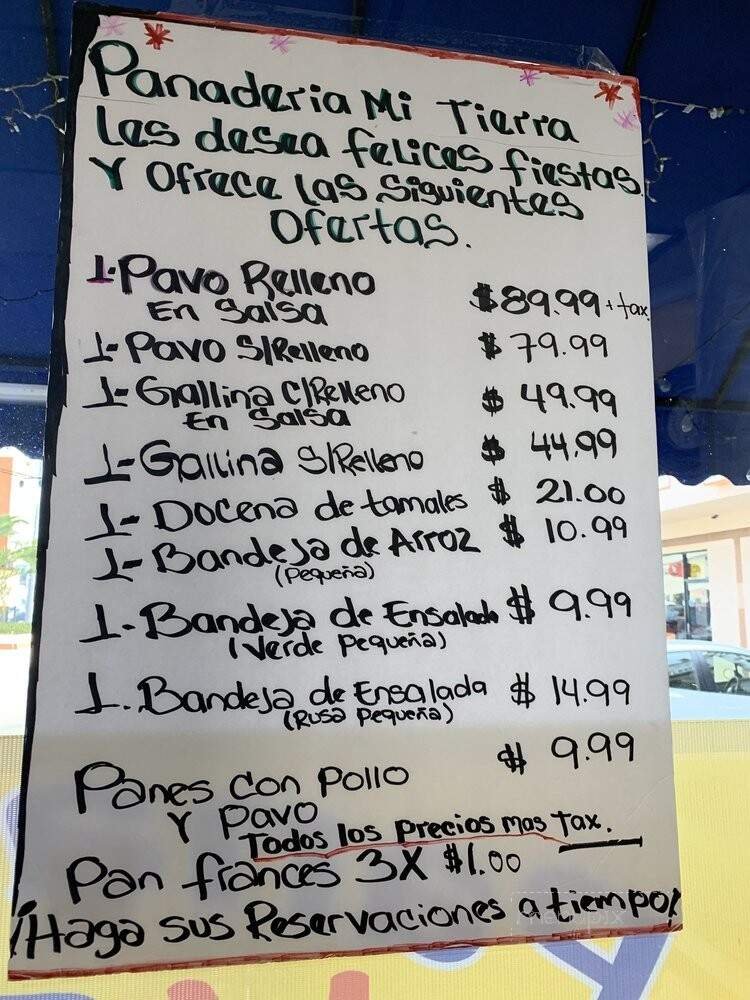 Panaderia Mi Tierra
Les desea felices fiestas
Y Ofrece las Siguientes
Ofertas.
1-Pavo Relleno $89.99 + tax
En Salsa
1-Pavo S/Relleno $79.99
1-Gallina C/Relleno $49.99
En Salsa
1-Gallina S/Relleno $44.99
1-Docena de tamales $21.00
1-Bandeja de Arroz $10.99
(Pequeña)
1-Bandeja de Ensalada $9.99
(Verde Pequeña)
1.Bandeja de Ensalada $14.99
(Rusa Pequeña)
Panes con Pollo $9.99
Y Pavo
Todos los precios mas tax.
Pan frances 3X $1.00
¡Haga sus Reservaciones a tiempo!